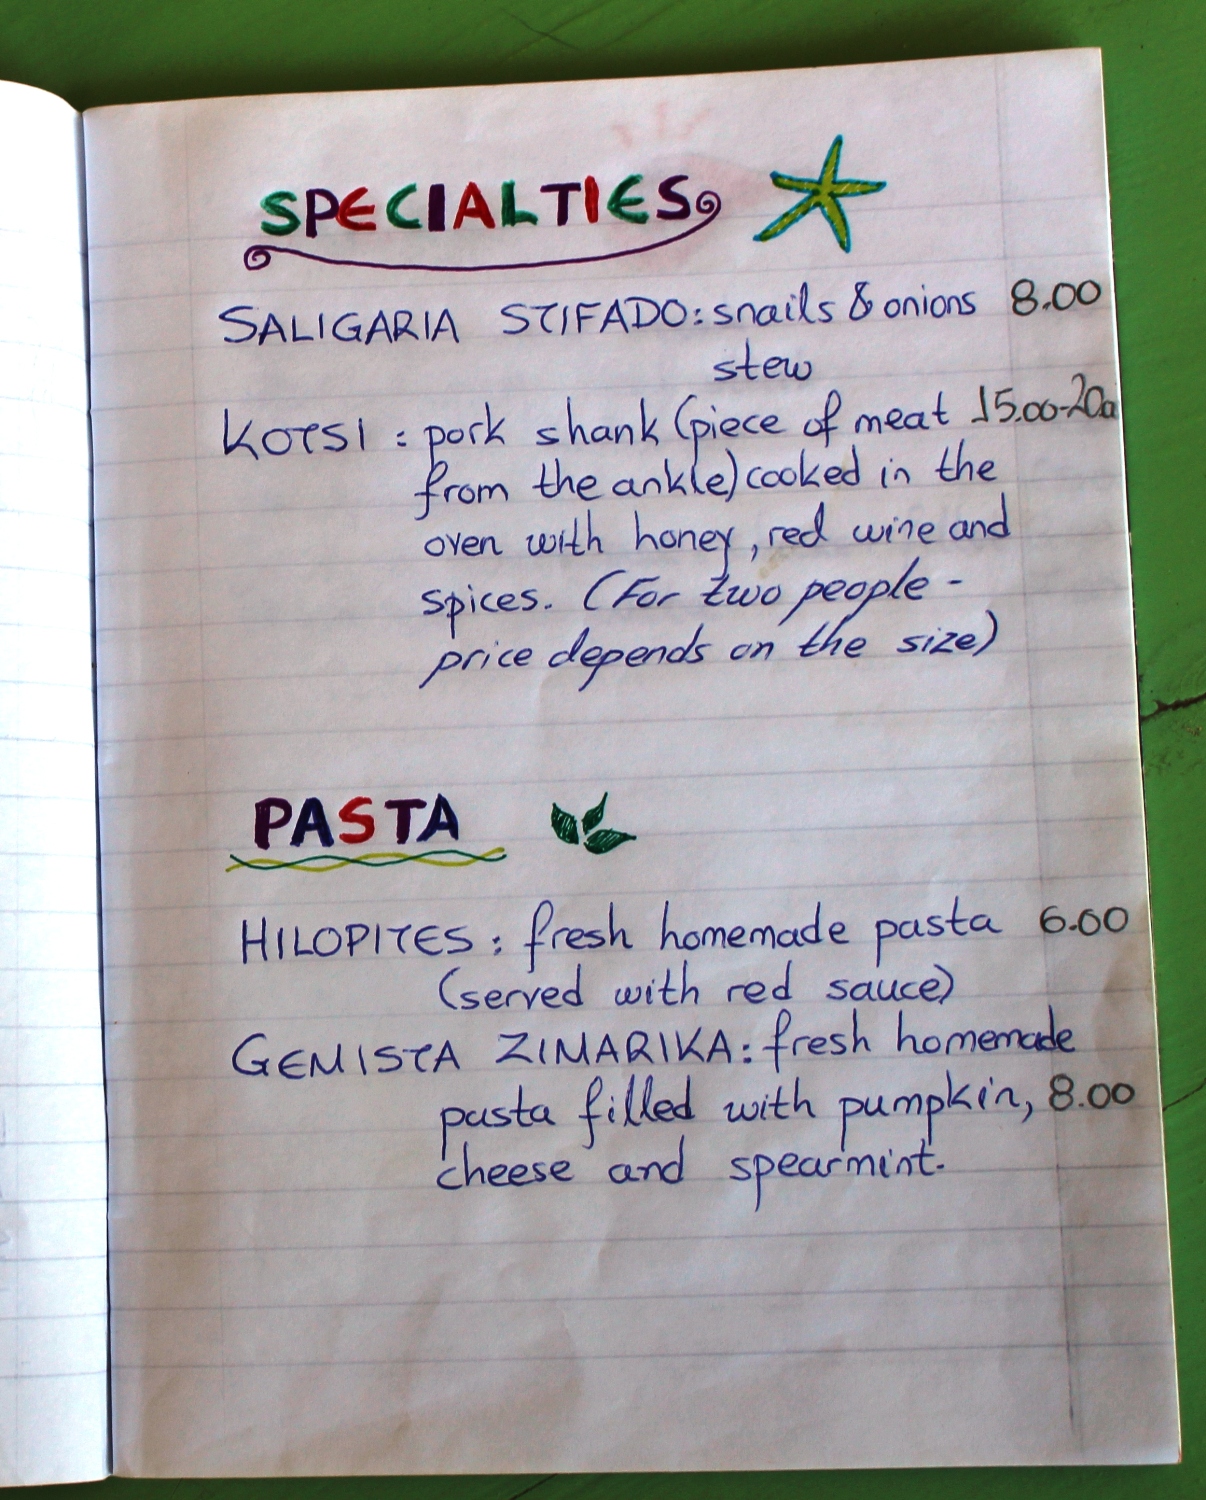 SPECIALTIES
SALIGARIA STIFADO: snails & onions 8.00
stew
KOTSI : pork shank (piece of meat 15.00-20
from the ankle) cooked in the
oven with honey, red wine and
spices. (For two people -
price depends on the size)
PASTA
HILOPITES : fresh homemade pasta 6.00
(served with red sauce)
GEMISTA ZIMARIKA: fresh homemade
pasta filled with pumpkin, 8.00
cheese and spearmint.